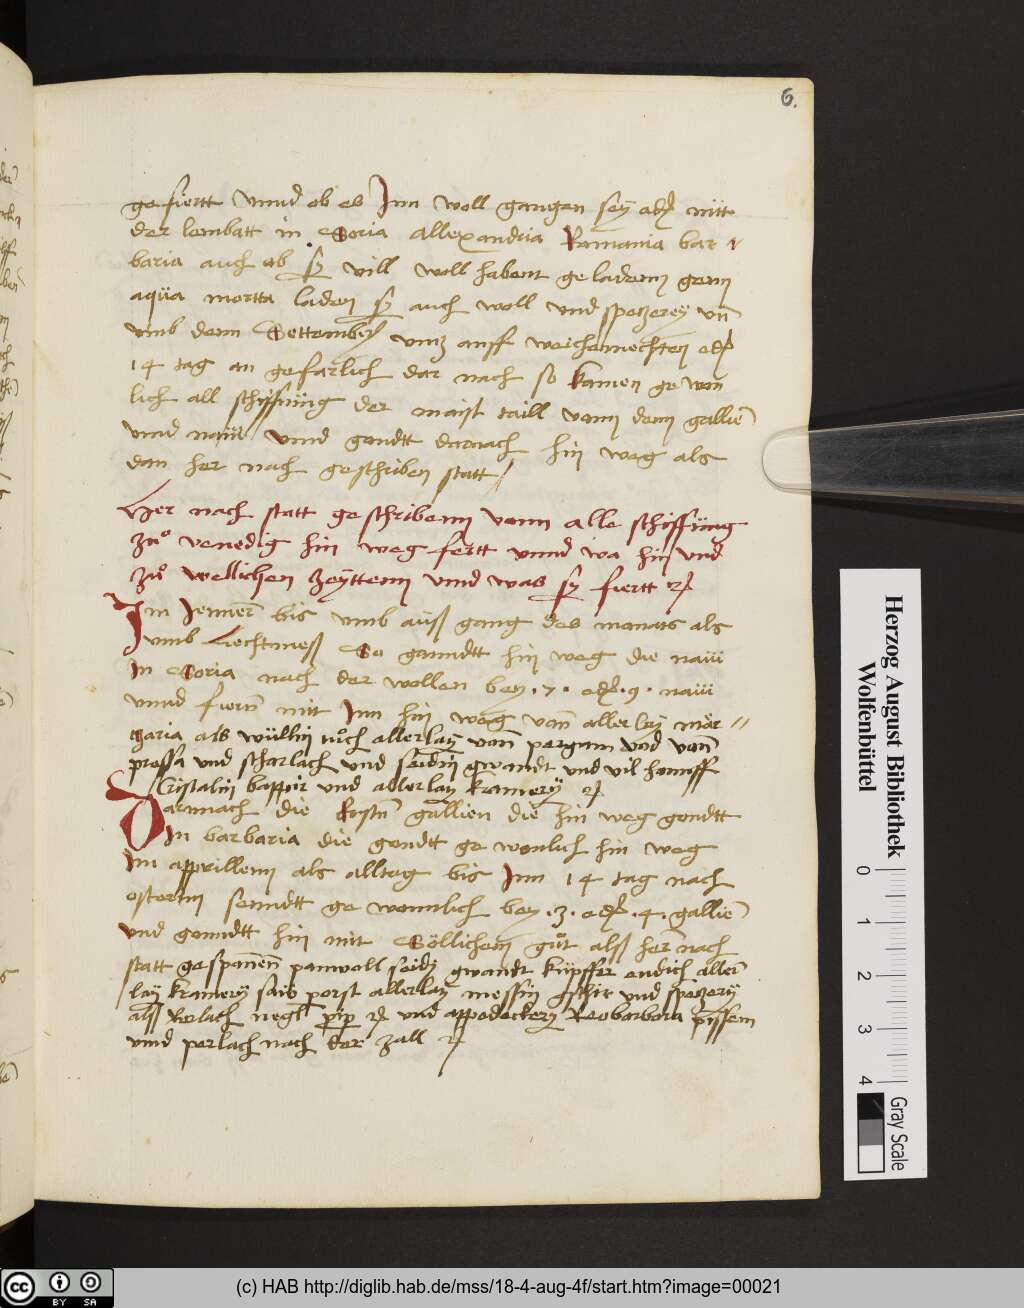 6.
gefiertt vnnd ob es Inn woll gangen seÿ oder nitt
der lembatt in Soria allexandria Romania bar
baria auch ob sÿ vill woll habent geladenn genn
aqüa mortta laden sÿ auch woll vnd spetzereÿ vñ
vmb denn Settember vnnz auff weichennechten oder
14 tag an gefarlich dar nach so kamen ge won
lich all schiffüng der maist taill vonn denn galliē
vnnd naüi vnnd gondtt darnach hin weg als
dan her nach geschriben statt
Her nach statt geschribenn vonn alle schiffüng
zuº venedig hin weg fertt vnnd wa hin vnd
zuº wellichen Zeÿttenn vnnd was sÿ fiertt
Im Jenner bis vmb auß gang des monats als
vmb Liechtmeß So ganndtt hin weg die naüi
In Soria nach der wollen beÿ .7. oder .9. naüi
vnnd fiern mit Inn hin weg vañ aller laÿ mar
garia als wüllin tuch allerlaÿ von pergam vnd von
pressa vnd scharlach vnd seidin gwandt vnd vil hanuff
Cristalin bappir vnd allerlaÿ kramerÿ
Darnnach die Rostñ gallien die hin weg gondtt
In barbaria die gondtt ge wonlich hin weg
Im apprillenn als alltag bis Inn 14 tag nach
osterin seinndtt ge wonnlich beÿ .3. oder .4. galliē
vnd gonndtt hin mit Söllichem güt alß her nach
statt gespanēn panwoll seidÿ gwandt kupffer endich aller
laÿ kramerÿ saib porst allerlaÿ messin gschir vnd spetzerÿ
alß negl vnd appodeckerÿ Reobarbara pissem
vnnd perlach nach der zall
Herzog August Bibliothek
Wolfenbüttel
0 1 2 3 4
Gray Scale
cc BY SA
(c) HAB http://diglib.hab.de/mss/18-4-aug-4f/start.htm?image=00021